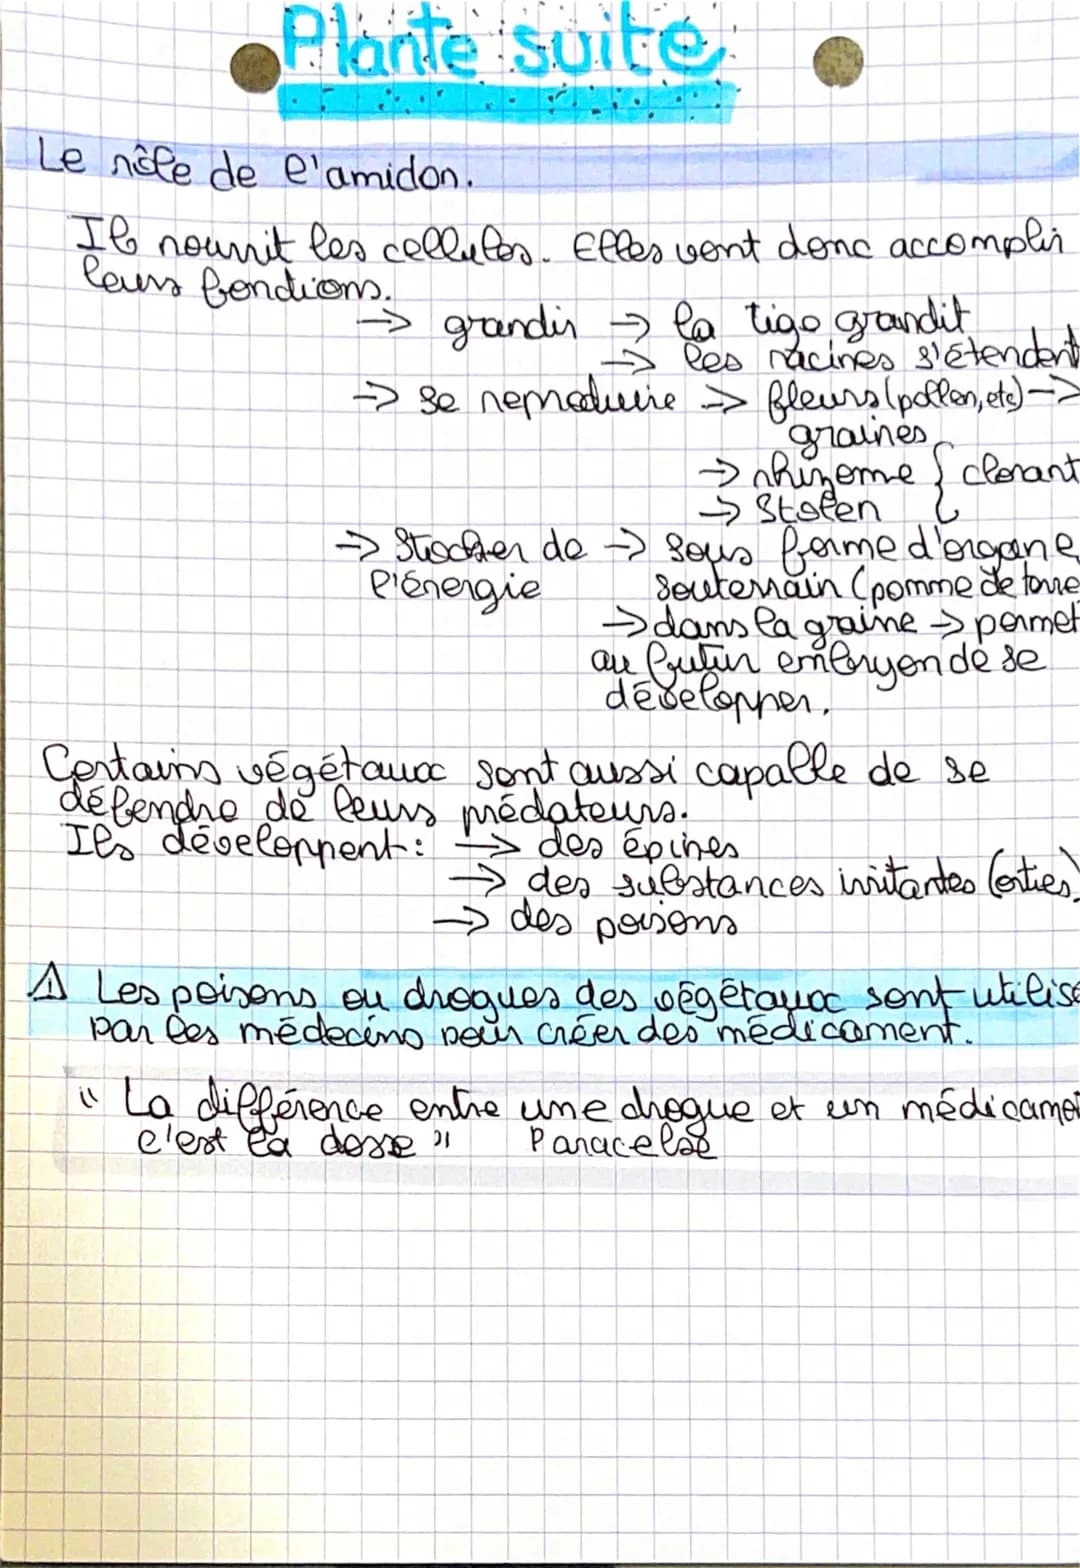 Plante suite
Le rôle de l'amidon.
Il nourrit les cellules. Elles vont donc accomplir
leurs fonctions.
→ grandir → la tige grandit
→ les racines s'étendent
→ se reproduire → fleurs (pollen, etc) →
graines
→ rhizome { clonant
→ Stolon
→ Stocker de → sous forme d'organe
l'énergie souterrain (pomme de terre
→ dans la graine → permet
au futur embryon de se
développer.
Certains végétaux sont aussi capable de se
défendre de leurs prédateurs.
Ils développent: → des épines
→ des substances irritantes (orties)
→ des poisons
⚠ Les poisons ou drogues des végétaux sont utilisé
par les médecins pour créer des médicament.
" La différence entre une drogue et un médicamen
c'est la dose " Paracelse